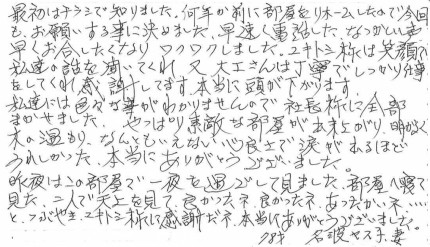 最初はチラシで知りました。何年か前に部屋をリホームしたので今回
も、お願いする事に決めました。早速、電話した。なつかしい声
早くお会いしたくなりワクワクしました。ユキトシ様は笑顔で
私達の話を聞いてくれ、又大工さんは丁寧でしっかり仕事
をしてくれ感謝してます。本当に頭が下がります。
私達には色々な事がわかりませんので社長様に全部
まかせました。やっぱり素敵な部屋が出来上がり、明かるく
木の温もり、なんともいえない心良さで涙がでるほど
うれしかった。本当にありがとうございました。
昨夜はこの部屋で一夜を過ごして見ました。部屋へ寝て
見た、二人で天上を見て、良かったネ、良かったネ、あったかいネ……
と、つぶやき、ユキトシ様に感謝だネ、本当にありがとうございました。
78才 ヤス子 妻。